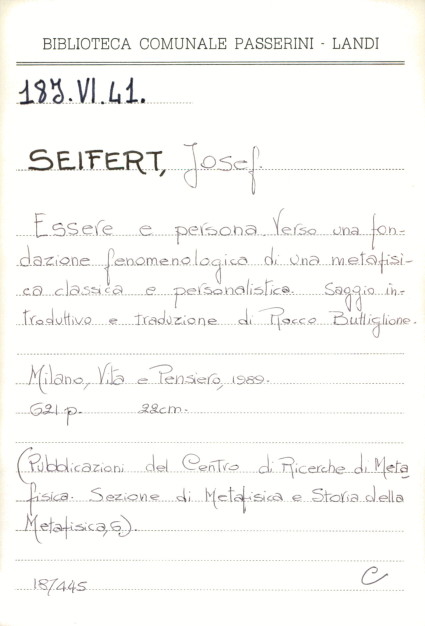 BIBLIOTECA COMUNALE PASSERINI - LANDI
18J.VI.41.
SEIFERT, Josef.
Essere e persona. Verso una fon-
dazione fenomenologica di una metafisi-
ca classica e personalistica. Saggio in-
troduttivo e traduzione di Rocco Buttiglione.
Milano, Vita e Pensiero, 1989.
621 p. 22cm.
(Pubblicazioni del Centro di Ricerche di Meta
fisica. Sezione di Metafisica e Storia della
Metafisica, 6).
18/445
C